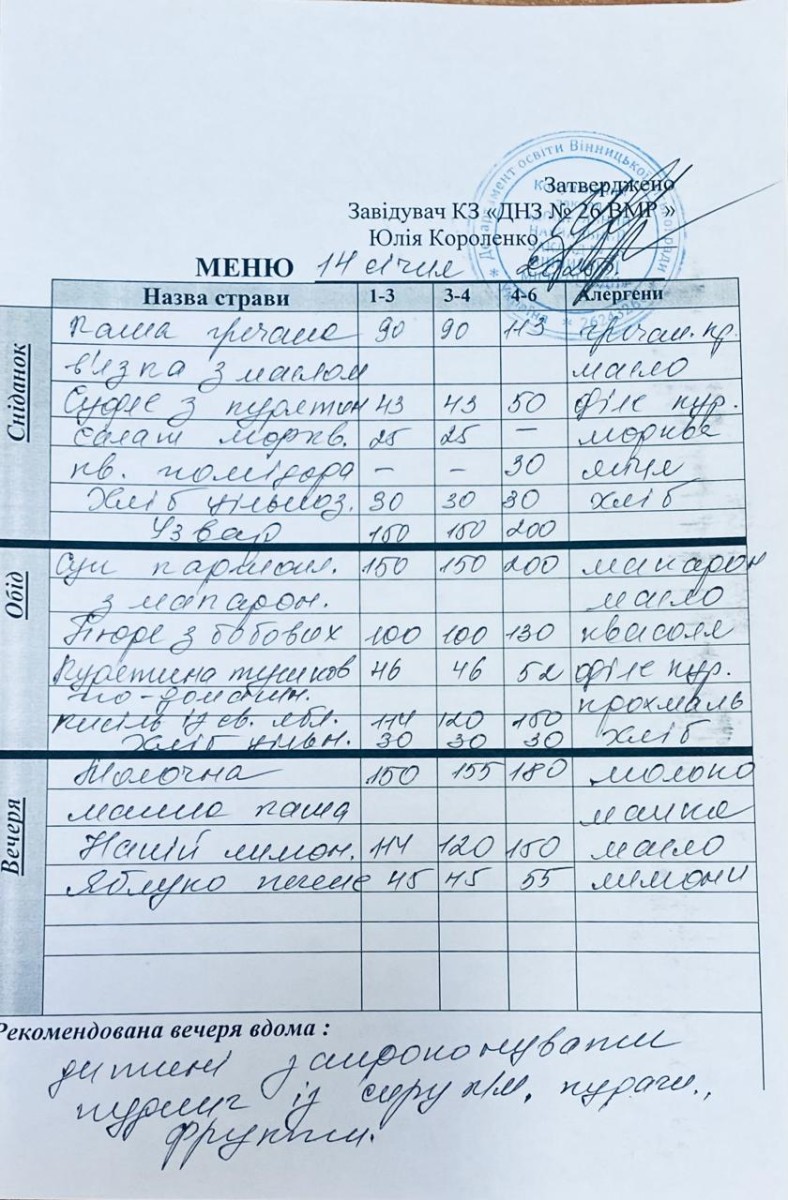 Затверджено
Завідувач КЗ «ДНЗ № 26 ВМР »
Юлія Короленко
МЕНЮ 14 січня
Назва страви 1-3 3-4 4-6 Алергени
Сніданок
Каша гречана 90 90 113 гречан. кр.
в'язка з маслом масло
Суфле з курятин 43 43 50 філе кур.
Салат моркв. 25 25 – морква
кв. помідора – – 30 яйця
Хліб цільноз. 30 30 30 хліб
Узвар 150 150 200
Обід
Суп картопл. 150 150 200 макарон
з макарон. масло
Пюре з бобових 100 100 130 квасоля
Курятина тушков 46 46 52 філе кур.
по-домашн. крохмаль
кисіль із св. ябл. 114 120 150
Хліб цільн. 30 30 30 хліб
Вечеря
Молочна 150 155 180 молоко
манна каша манка
Напій лимон. 114 120 150 масло
Яблуко печене 45 45 55 лимони
Рекомендована вечеря вдома :
дитині запропонувати
пудинг із сиру к/м,
фрукти.